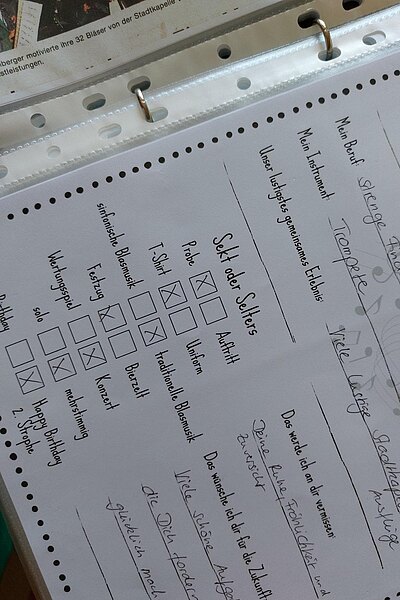 berger motivierte ihre 32 Bläser von der Stadtkapelle
stleistungen.
Mein Beruf: strenge
Mein Instrument: Trompete
Unser lustigstes gemeinsames Erlebnis:
Viele lustige Stadtkapelle
Ausflüge
Sekt oder Selters
Probe ☒ ☐ Auftritt
T-Shirt ☒ ☐ Uniform
sinfonische Blasmusik ☐ ☒ traditionelle Blasmusik
Festzug ☒ ☐ Bierzelt
Wertungsspiel ☐ ☒ Konzert
solo ☐ ☒ mehrstimmig
Birthday ☐ ☒ Happy Birthday
2. Strophe
Das werde ich an dir vermissen:
Deine Ruhe, Fröhlichkeit und
Zuversicht
Das wünsche ich dir für die Zukunft
Viele schöne
die Dich
glücklich mach